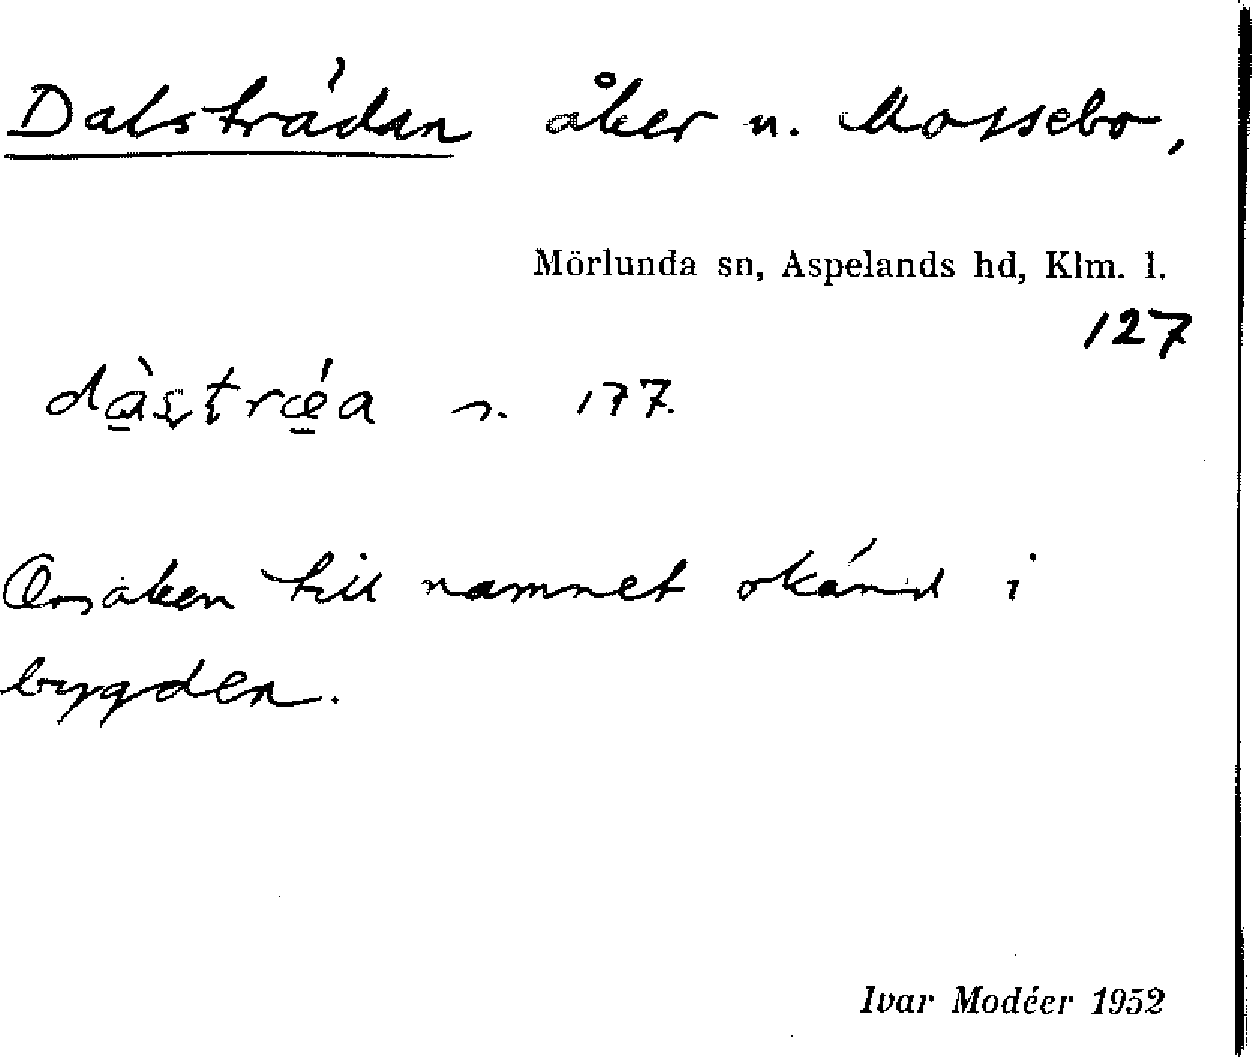 Dalsträdan åker n. Mossebo,
Mörlunda sn, Aspelands hd, Klm. l.
127
dàstrǽa n. 177.
Orsaken till namnet okänd i
bygden.
Ivar Modéer 1952